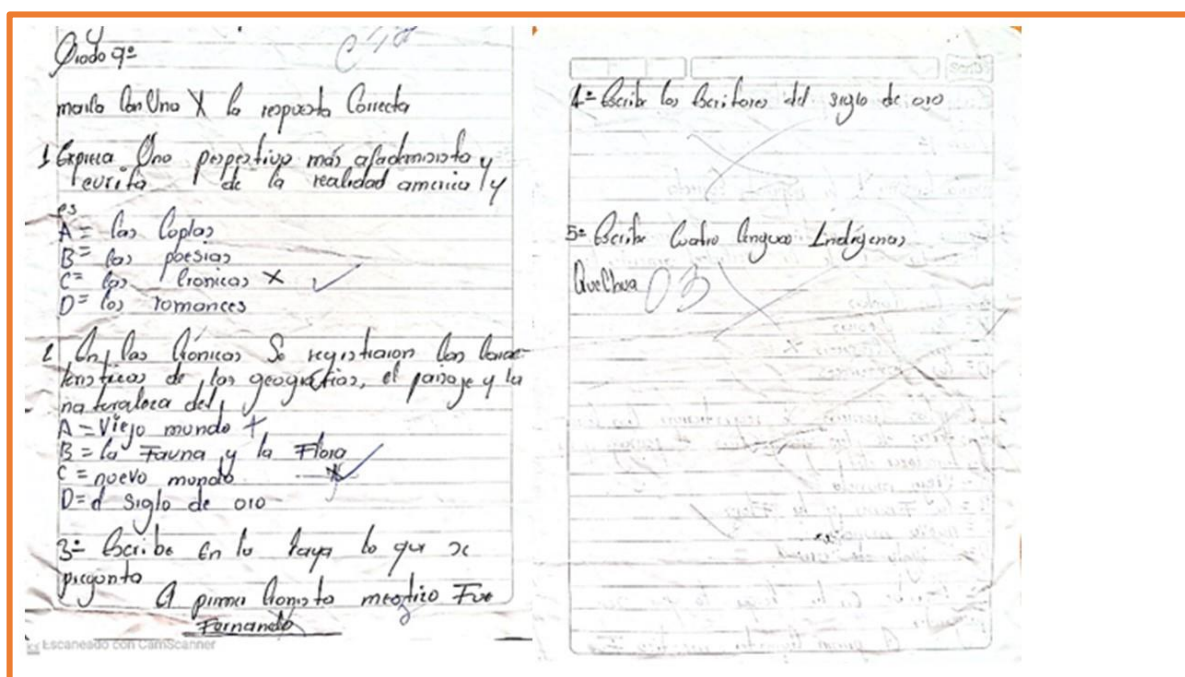 Grado 9º
marca Con Una X la respuesta Correcta
1 Expresa Una perspectiva más y
de la realidad america y
es
A= las Coplas
B= las poesias
C= las Cronicas X
D= los romances
2 En las Crónicas Se registraron las Carac
teristicas de las geografias, el paisaje y la
naturaleza del
A= Viejo mundo +
B= la Fauna y la Flora
C= nuevo mundo X
D= el siglo de oro
3= Escribe En la raya lo que se
pregunta
El primer Cronista mestizo Fue
Fernando
Escaneado con CamScanner
4= Escribe los Escritores del siglo de oro
5= Escribe Cuatro lenguas Indígenas
Quechua